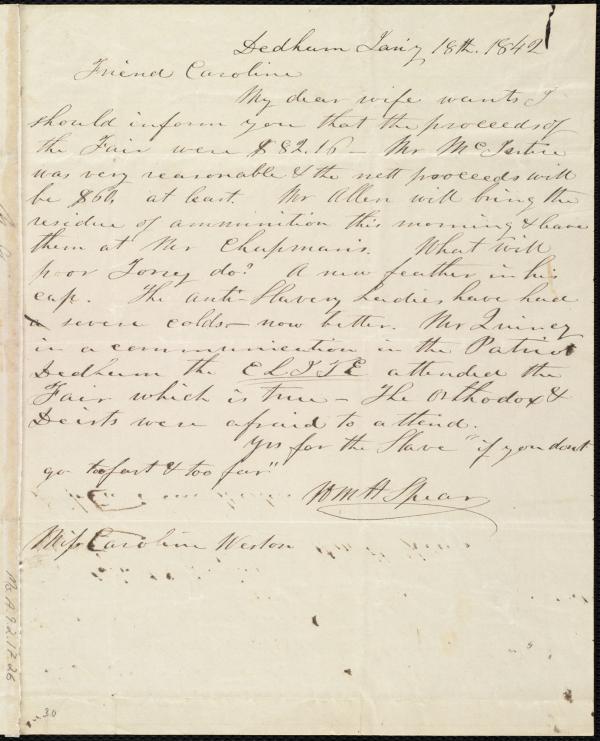 Dedham Jan'y 18th. 1842
Friend Caroline
My dear wife wants I
should inform you that the proceeds of
the Fair were $82.16 — Mr McIntire
was very reasonable & the nett proceeds will
be $60, at least. Mr Allen will bring the
residue of ammunition this morning & leave
them at Mr Chapman's. What will
poor Torrey do? A new feather in his
cap. The Anti-Slavery Ladies have had
a severe colds — now better. Mr Quincy
in a communication in the Patriot
Dedham the ELITE attended the
Fair which is true — The Orthodox &
Deists were afraid to attend.
Yrs for the Slave "if you dont
go too fast & too far"
Wm H Spear
Miss Caroline Weston
Ms. A.9.2.17.26
30